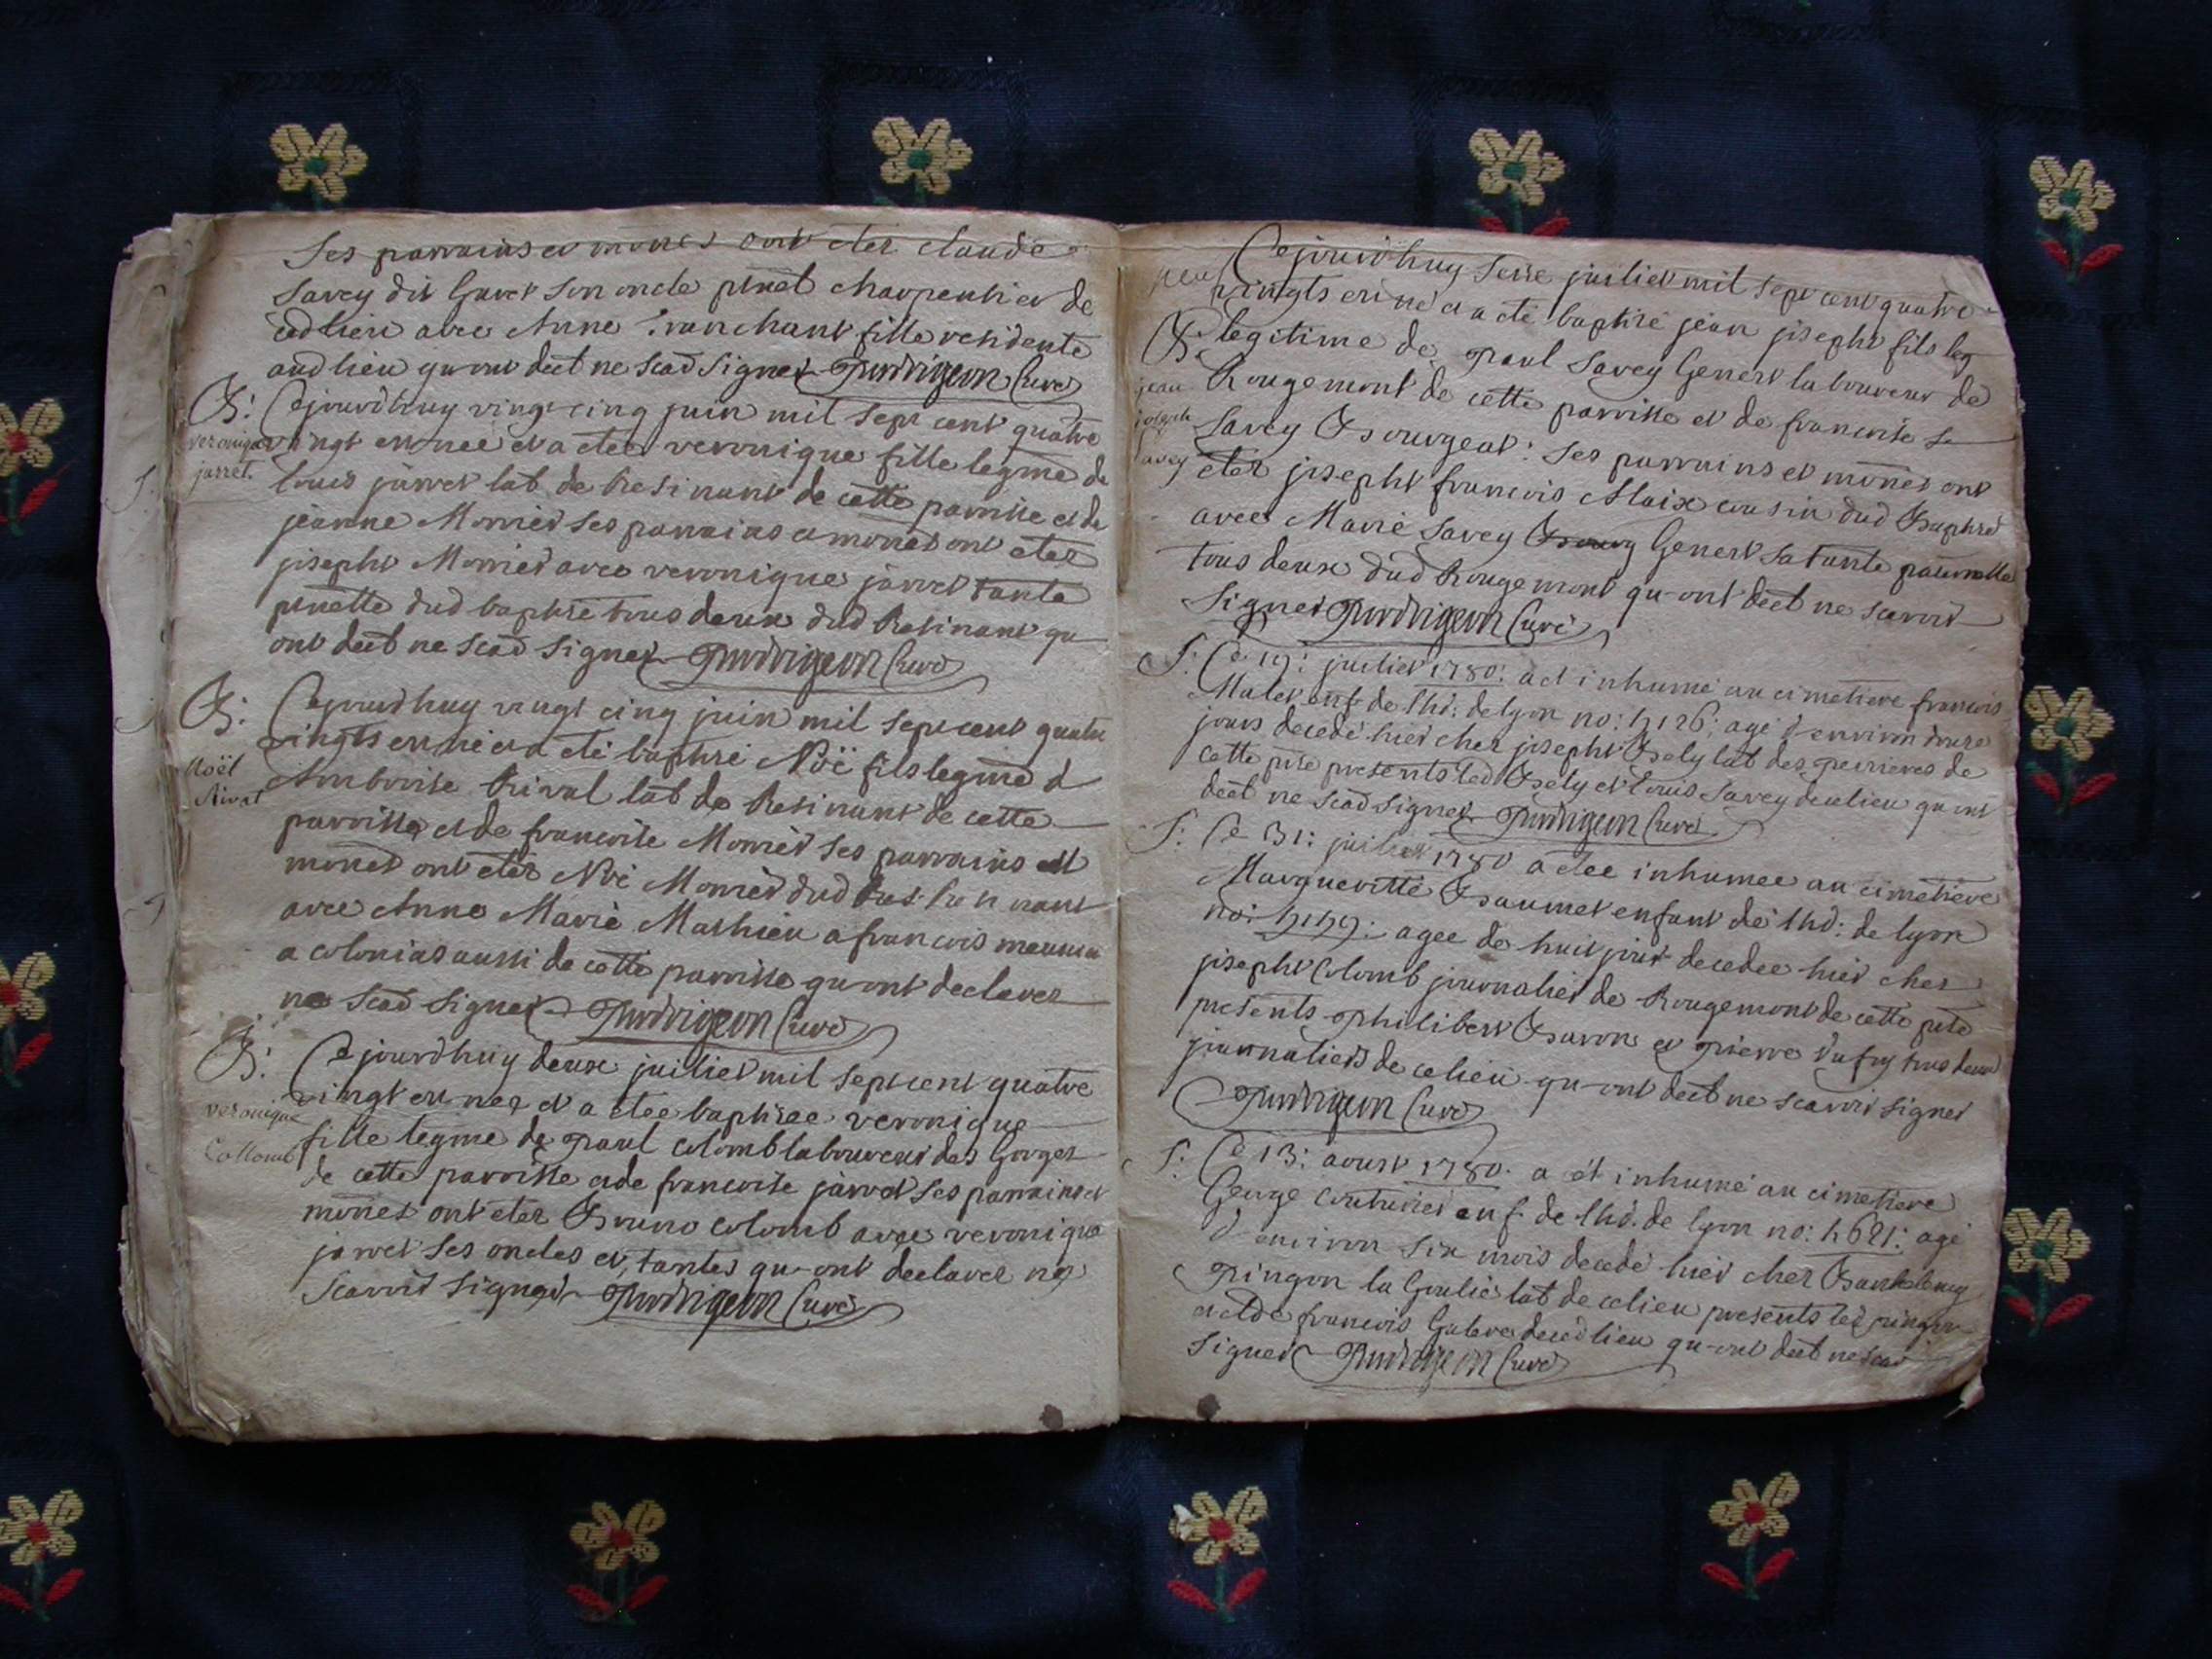 Ses parrains et mones ont eter claude
Savey dit Gavet son oncle pnel charpentier de
ced lieu avec Anne Tranchant fille residente
aud lieu qu ont dect ne scad signer Curé
B: Cejourdhuy vingt cinq juin mil sept cent quatre
veronique
jarret.
vingt en nee et a etee veronique fille legme de
louis jarret lab de Resinant de cette parroisse et de
jeanne Monier ses parrains et mones ont eter
joseph Monier avec veronique jarret tante
pnelle dud baptisé tous deux dud Resinant qu
ont dect ne scad signer Curé
B: Cejourdhuy vingt cinq juin mil sept cent quatre
Noël
Rival
vingts en né et a eté baptisé Noë fils legme d
Ambroise Rival lab de Resinant de cette
parroisse et de francoise Monier ses parrains et
mones ont eter Noë Monier dud
avec Anne Marie Mathieu a francois meunier
a colonias aussi de cette parroisse qu ont declarer
ne scad signer Curé
B: Cejourdhuy deux juillet mil sept cent quatre
veronique
Collomb
vingt en nee et a etee baptisee veronique
fille legme de paul colomb laboureur des Gorges
de cette parroisse et de francoise jarret ses parrains et
mones ont eter Bruno colomb avec veronique
jarret ses oncles et tantes qu-ont declarer ne
scavoir signer Curé
Cejourdhuy seize juillet mil sept cent quatre
vingts en né et a eté baptisé jean joseph fils leg
B. legitime de paul Savey Genest laboureur de
jean
joseph
savey
Rougemont de cette parroisse et de francoise
Savey Bourgeat: Ses parrains et mones ont
eter joseph francois Alaix cousin dud Baptisé
avec Marie Savey Genest sa tante paternelle
tous deux dud Rougemont qu-ont dect ne scavoir
signer Curé
S: Ce 19: juillet 1780: a et inhumé au cimetiere francois
Malet enf de lhd: de lyon no: 4126: agé d'environ douze
jours decedé hier chez joseph Bely lab des perrieres de
cette pise presents led Bely et louis Savey de ce lieu qu ont
dect ne scad signer Curé
S: Ce 31: juillet 1780 a etee inhumee au cimetiere
Margueritte Baumet enfant de lhd: de lyon
no: 4149: agee de huit jours decedee hier chez
joseph Colomb journalier de Rougemont de cette pise
presents philibert Baron et pierre Dufuy tous deux
journaliers de ce lieu qu-ont dect ne scavoir signer
Curé
S: Ce 13: aoust 1780. a et inhumé au cimetiere
George Couturier enf. de lhd. de lyon no: 4621: agé
d'environ six mois decedé hier chez Barthelemy
pingon la Goulie lab de ce lieu presents led pingon
et francois de ced lieu qu-ont dect ne scad
signer Curé